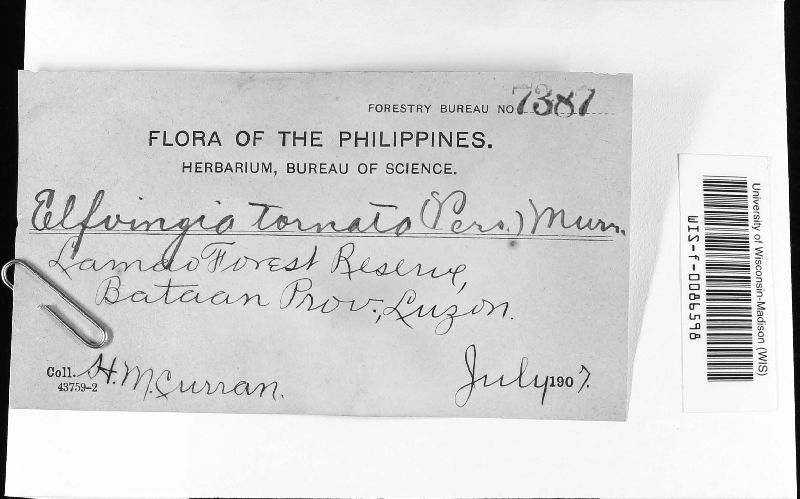 FORESTRY BUREAU NO. 7387
FLORA OF THE PHILIPPINES.
HERBARIUM, BUREAU OF SCIENCE.
Elfvingia tornata (Pers.) Murr.
Lamao Forest Reserve,
Bataan Prov., Luzon.
Coll. H. M. Curran.
43759-2
July 1907.
University of Wisconsin-Madison (WIS)
WIS-f-0086598